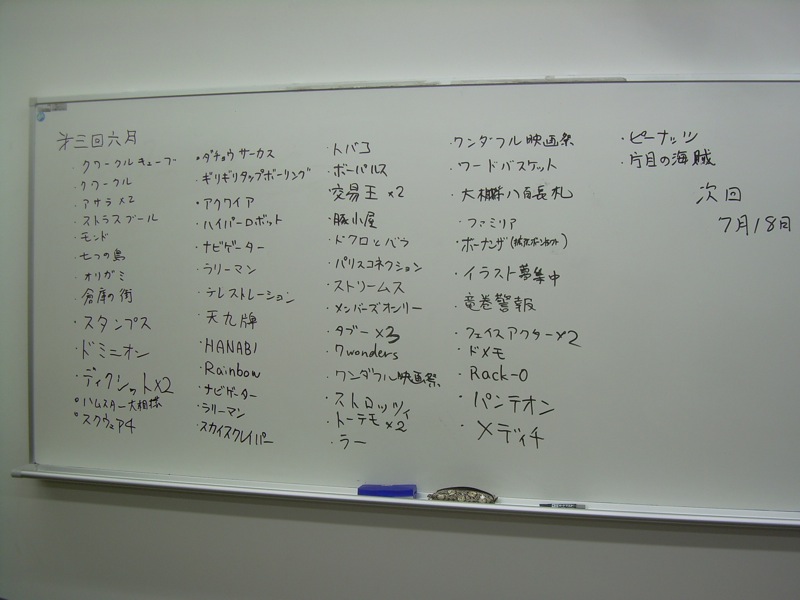 才三回六月
・クワークルキューブ
・クワークル
・アサラ×2
・ストラスブール
・モンド
・七つの島
・オリガミ
・倉庫の街
・スタンプス
・ドミニオン
・ディクシット×2
・ハムスター大相撲
・スクウェア4
・ダチョウサーカス
・ギリギリタップボーリング
・アクワイア
・ハイパーロボット
・ナビゲーター
・ラリーマン
・テレストレーション
・天九牌
・HANABI
・Rainbow
・ナビゲーター
・ラリーマン
・スカイスクレイパー
・トバゴ
・ボーパルス
・交易王 ×2
・豚小屋
・ドクロとバラ
・パリスコネクション
・ストリームス
・メンバーズオンリー
・タブー×3
・7wonders
・ワンダフル映画祭
・ストロッツィ
・トーテモ×2
・ラー
・ワンダフル映画祭
・ワードバスケット
・大棚ハ百長札
・ファミリア
・ボーナンザ
・イラスト募集中
・竜巻警報
・フェイスアクター×2
・ドメモ
・Rack-O
・パンテオン
・メディチ
・ピーナッツ
・片目の海賊
次回
7月18日